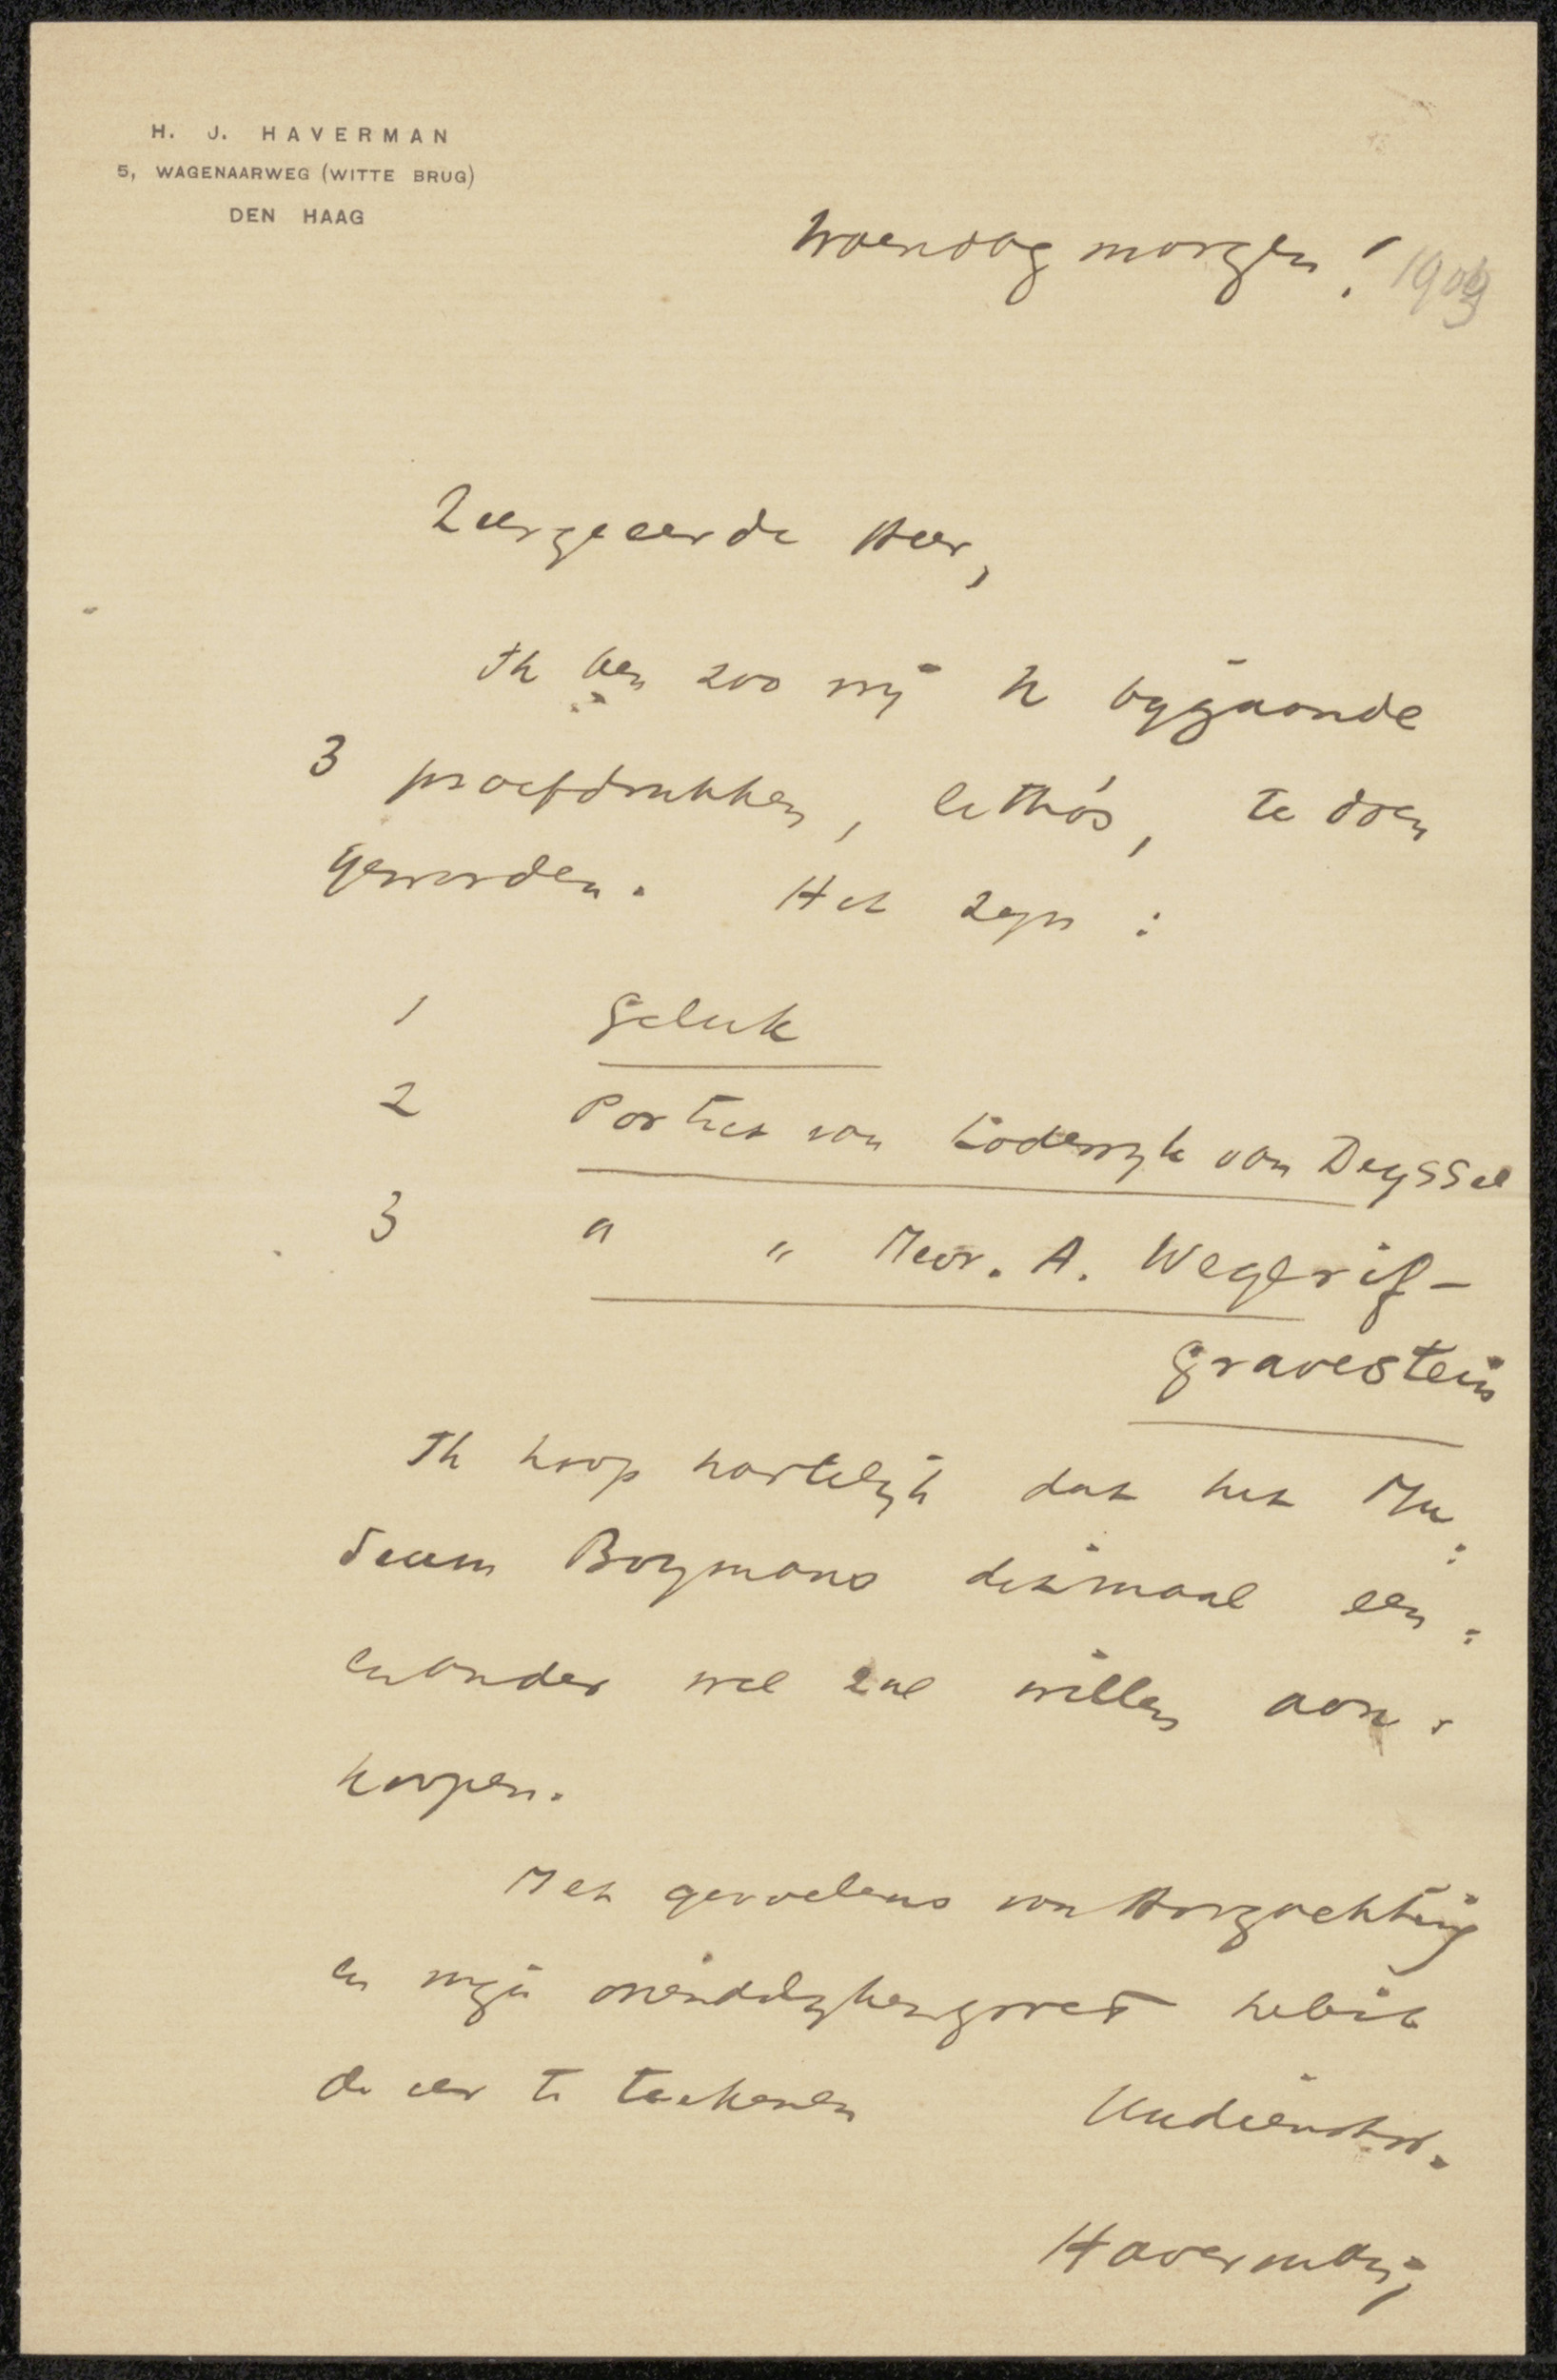 H. J. HAVERMAN
5, WAGENAARWEG (WITTE BRUG)
DEN HAAG
Woensdag morgen! 1909
Zeergeeerde Heer,
Ik ben zoo vrij U bijgaande
3 proefdrukken, litho's, te doen
geworden. Het zijn:
1 Geluk
2 Portret van Lodewijk van Deyssel
3 " " Mevr. A. Wegerif-
Gravestein
Ik hoop hartelijk dat het Mu:
seum Boymans ditmaal een:
enander wel zal willen aan:
koopen.
Met gevoelens van Hoogachting
en mijn vriendelijken groet heb ik
de eer te teekenen
Uw dienstw.
Haverman,